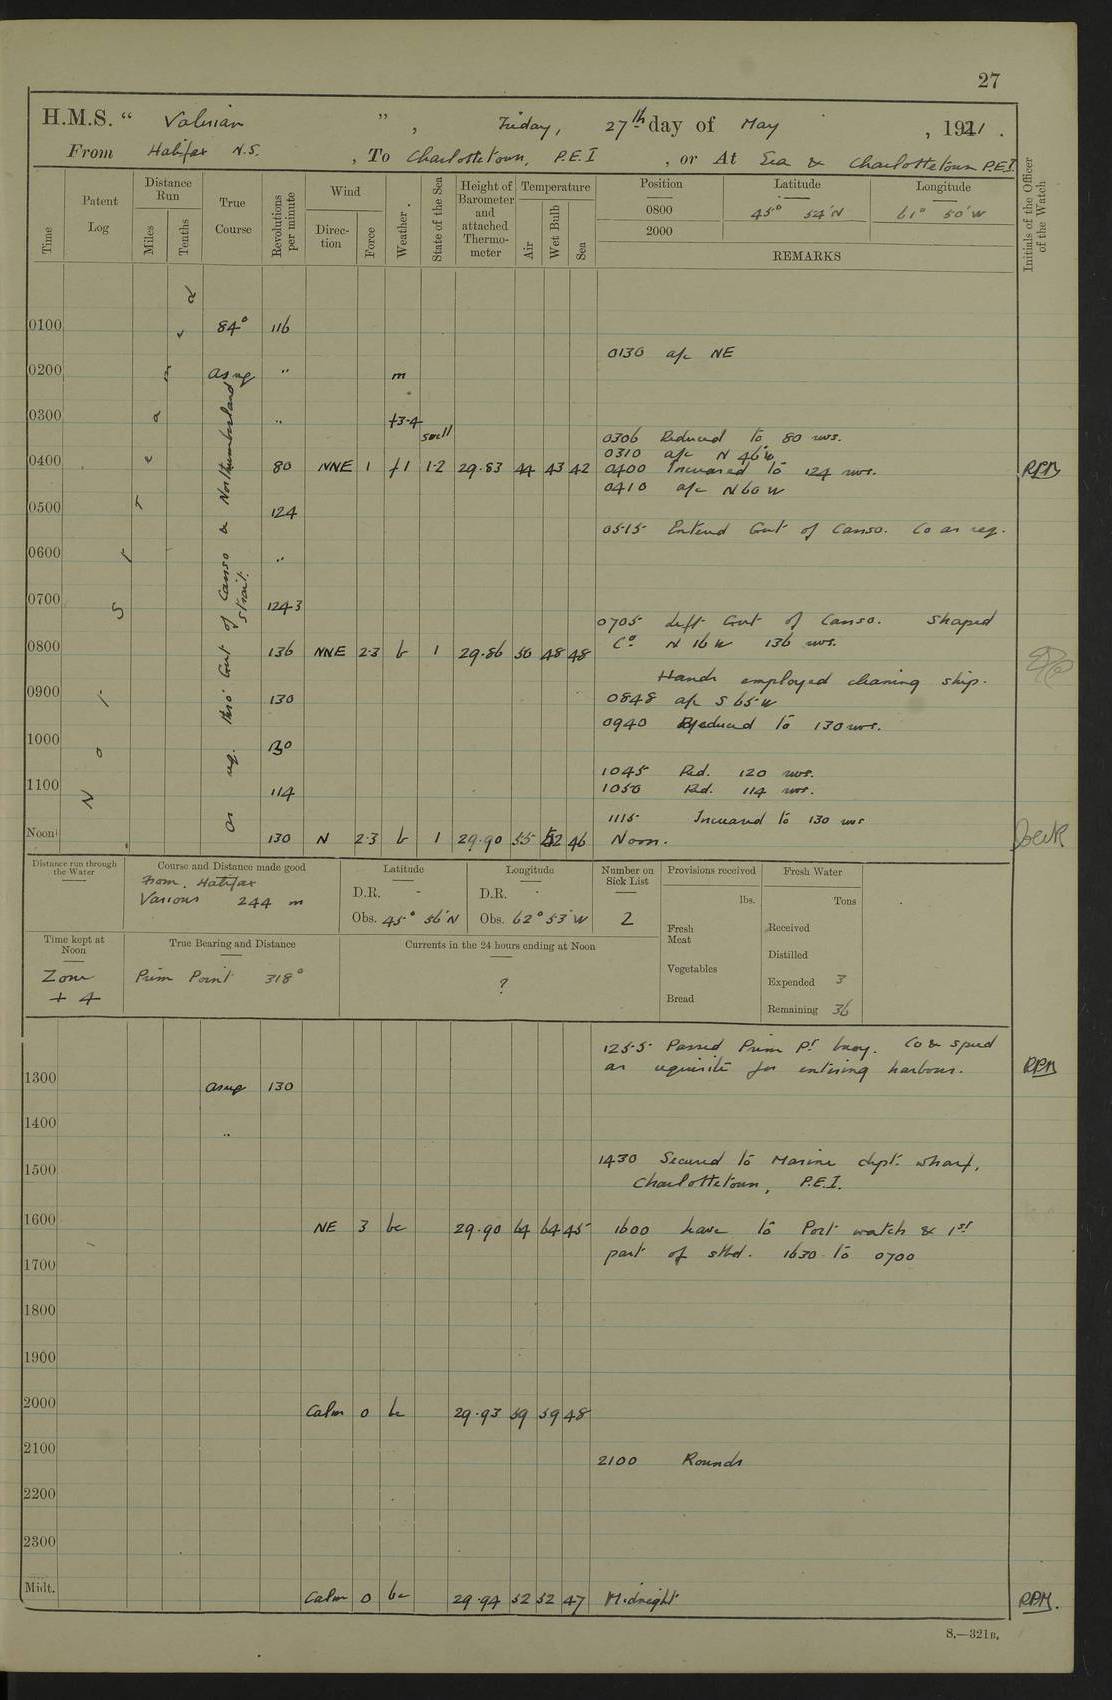 27
H.M.S. “ Valerian ” , Friday, 27th day of May , 1921 .
From Halifax N.S. , To Charlottetown, P.E.I , or At Sea & Charlottetown P.E.I.
Time
Patent Log
Distance Run
Miles
Tenths
True Course
Revolutions per minute
Wind
Direction
Force
Weather.
State of the Sea
Height of Barometer and attached Thermometer
Temperature
Air
Wet Bulb
Sea
Position
Latitude
Longitude
0800 45° 54'N 61° 50'W
2000
REMARKS
Initials of the Officer of the Watch
Not Streamed
as req. thro' Gut of Canso & Northumberland Strait.
0100 84° 116
0130 a/c NE
0200 as req " m
0300 " f3-4 swell
0306 Reduced to 80 revs.
0310 a/c N 46 W
0400 80 NNE 1 f1 1-2 29.83 44 43 42 0400 Increased to 124 revs. RPM
0410 a/c N60W
0500 124
0515 Entered Gut of Canso. Co as req.
0600 "
0700 124.3
0705 Left Gut of Canso. Shaped
Co. N 16 W 136 revs.
0800 136 NNE 2.3 b 1 29.86 50 48 48
Hands employed cleaning ship.
0900 130 0848 a/c S 65 W
0940 Reduced to 130 revs.
1000 130
1045 Red. 120 revs.
1100 114 1050 Red. 114 revs.
1115 Increased to 130 revs
Noon 130 N 2.3 b 1 29.90 55 52 46 Noon.
Distance run through the Water
Course and Distance made good
From Halifax
Various 244 m
Latitude
D.R. -
Obs. 45° 56'N
Longitude
D.R. -
Obs. 62° 53'W
Number on Sick List
2
Provisions received
lbs.
Fresh Meat
Vegetables
Bread
Fresh Water
Tons
Received
Distilled
Expended 3
Remaining 36
Time kept at Noon
Zone
+ 4
True Bearing and Distance
Prim Point 318°
Currents in the 24 hours ending at Noon
?
1255 Passed Prim Pt buoy. Co & speed
as requisite for entering harbour. RPM
1300 as req 130
1400 "
1430 Secured to Marine dept. wharf,
Charlottetown, P.E.I.
1500
1600 NE 3 bc 29.90 64 64 45 1600 Leave to Port watch & 1st
part of stbd. 1630 to 0700
1700
1800
1900
2000 Calm 0 bc 29.93 59 59 48
2100 2100 Rounds
2200
2300
Midt. Calm 0 bc 29.94 52 52 47 Midnight RPM.
S.—321B.